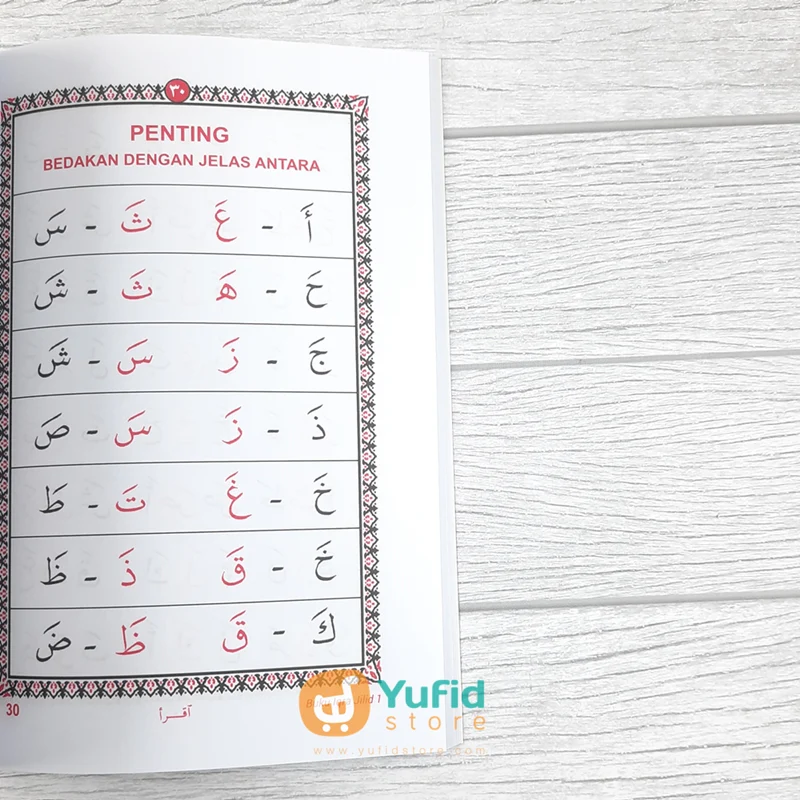 ٣٠
PENTING
BEDAKAN DENGAN JELAS ANTARA
أَ - عَ ثَ - سَ
حَ - هَ ثَ - شَ
جَ - زَ سَ - شَ
ذَ - زَ سَ - صَ
خَ - غَ تَ - طَ
خَ - قَ ذَ - ظَ
كَ - قَ ظَ - ضَ
30
اقرأ
Jilid 1
Yufid
store
www.yufidstore.com